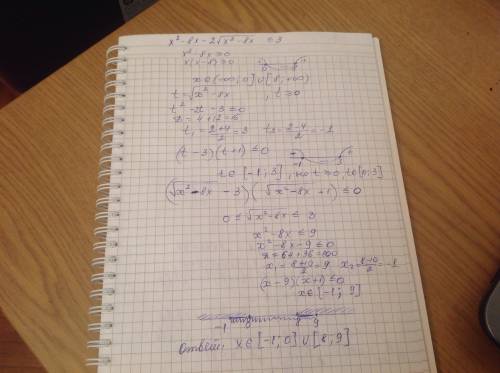 x² - 8x - 2√x² - 8x ≤ 3
x² - 8x ≥ 0
x(x - 8) ≥ 0
x ∈ (-∞; 0] ∪ [8; +∞)
t = √x² - 8x , t ≥ 0
t² - 2t - 3 ≤ 0
D = 4 + 12 = 16
t₁ = (2+4)/2 = 3 t₂ = (2-4)/2 = -1
(t - 3)(t + 1) ≤ 0
-1 3
t ∈ [-1; 3], но t ≥ 0, t ∈ [0; 3]
(√x² - 8x - 3)(√x² - 8x + 1) ≤ 0
0 ≤ √x² - 8x ≤ 3
x² - 8x ≤ 9
x² - 8x - 9 ≤ 0
D = 64 + 36 = 100
x₁ = (8+10)/2 = 9 x₂ = (8-10)/2 = -1
(x - 9)(x + 1) ≤ 0
x ∈ [-1; 9]
-1 0 8 9
Ответ: x ∈ [-1; 0] ∪ [8; 9]